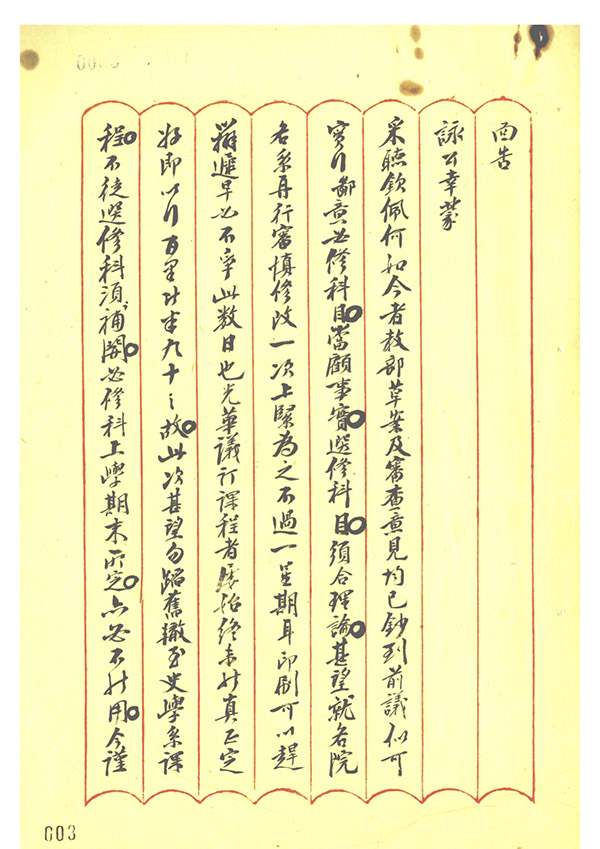 面告
詠公幸蒙
采聽欽佩何如今者教部草案及審查意見均已鈔到前議似可
實行鄙意必修科目當顧事實選修科目須合理論甚望就各院
各系再行審慎修改一次上緊為之不過一星期耳印刷可以趕
辦遲早必不爭此數日也光華議訂課程者屢始終未能真正定
好即以行百里計半九十之故此次甚望勿蹈舊轍至史學系課
程不徒選修科須補開必修科上學期末所定亦必不能用今謹
003